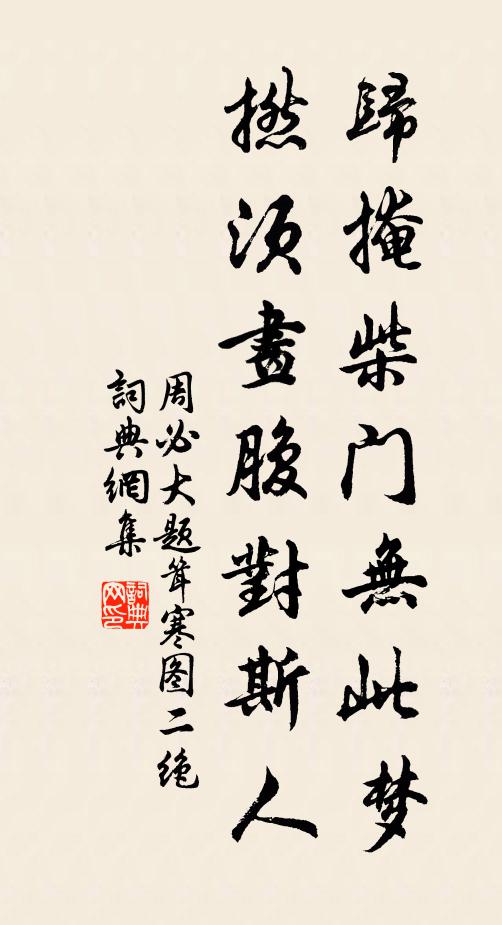 歸掩柴门無此梦
撚须畫腹對斯人
周必大题聳寒图二绝
詞典網集
詞典网印